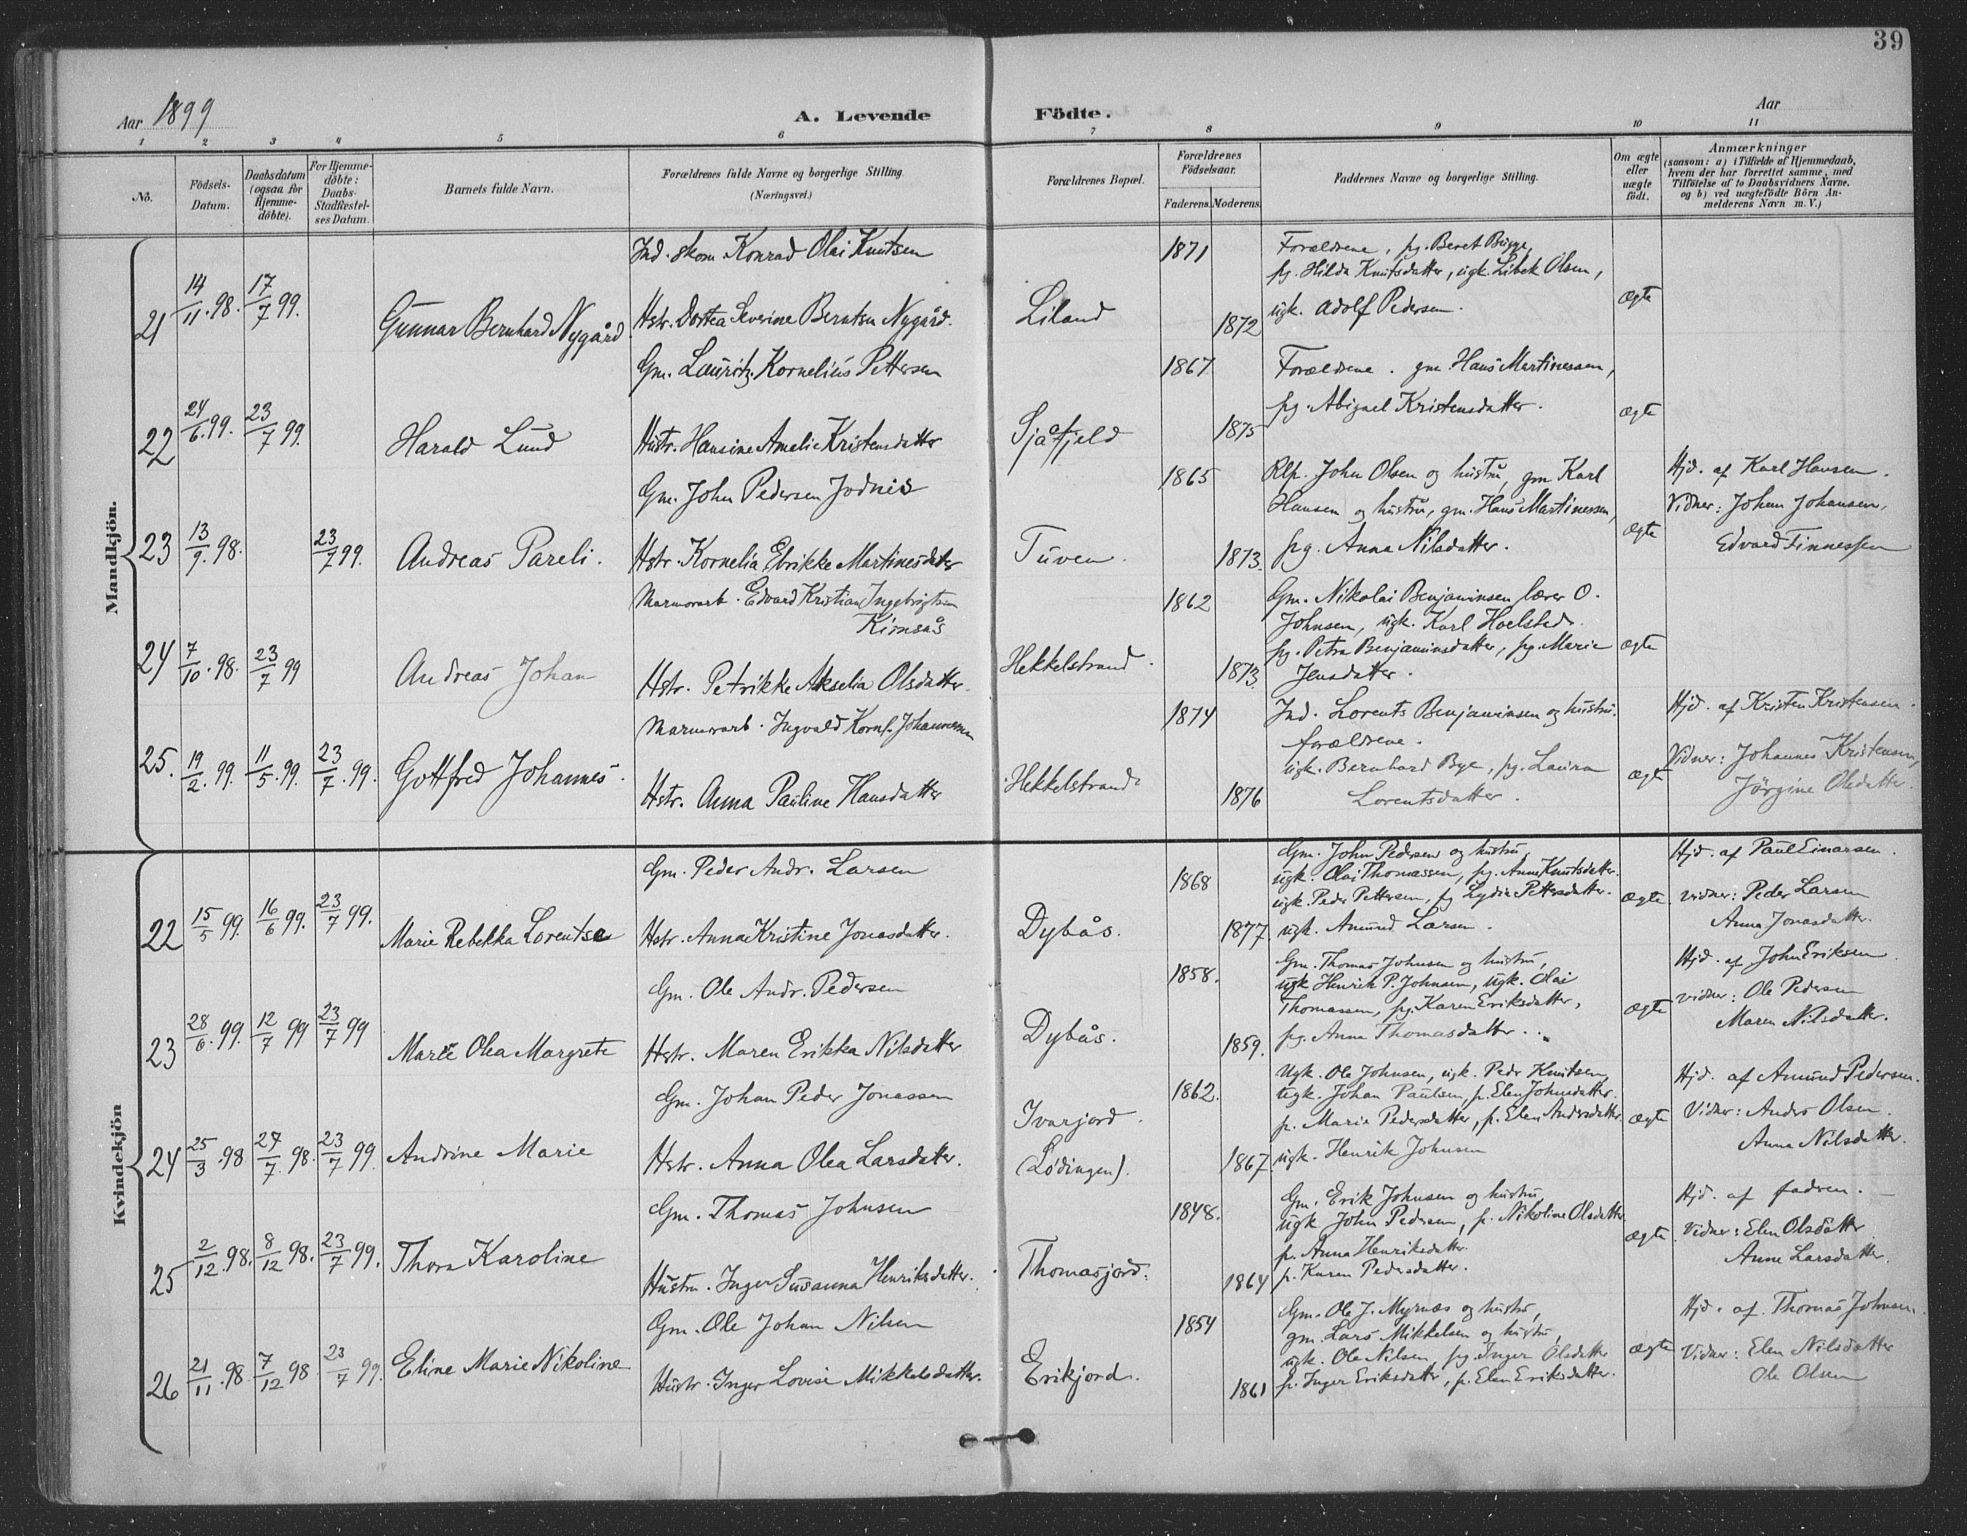 39
Aar 1899
A. Levende Födte.
Aar
1 2 3 4 5 6 7 8 9 10 11
No.
Födsels-Datum.
Daabsdatum (ogsaa for Hjemme-döbte).
For Hjemme-döbte: Daabs-Stadfæstelses Datum.
Barnets fulde Navn.
Forældrenes fulde Navne og borgerlige Stilling. (Næringsvei.)
Forældrenes Bopæl.
Forældrenes Födselsaar.
Faderens. Moderens.
Faddernes Navne og borgerlige Stilling.
Om ægte eller uægte födt.
Anmærkninger
(saasom: a) i Tilfælde af Hjemmedaab, hvem der har forrettet samme, med Tilföielse af to Daabsvidners Navne, og b) ved uægtefödte Börn Anmelderens Navn m. V.)
Mandkjön.
21 14/11.98. 17/7 99. Gunnar Bernhard Nygård
Ind. skom. Konrad Olai Knutsen
Hstr. Dortea Severine Berntsen Nygård.
Liland 1871 1872
Forældrene, pg. Beret Bugge,
pg. Hilda Knutsdatter, ugk. Libek Olsen,
ugk. Adolf Pedersen.
ægte
22 24/6.99. 23/7 99. Harald Lund
Gm. Lauritz Kornelius Pettersen
Hustr. Hansine Amelie Kristensdatter
Sjåfjeld 1867 1875
Forældrene. gm. Hans Martinessen,
pg. Abigael Kristensdatter.
ægte
23 13/9.98. 23/7 99. Andreas Pareli.
Gm. John Pedersen Jodnes
Hstr. Kornelia Ebrikke Martinesdatter
Tuven. 1865 1873.
Rlp. John Olsen og hustru, gm Karl
Hansen og hustru, gm. Hans Martinessen,
pg. Anna Nilsdatter.
ægte
Hjd. af Karl Hansen.
Vidner: Johan Johansen,
Edvard Finnessen
24 7/10.98. 23/7 99 Andreas Johan
Marmorarb. Edvard Kristian Ingebrigtsen
Kimsås
Hstr. Petrikke Akselia Olsdatter.
Hekkelstrand. 1862 1873.
Gm. Nikolai Benjaminsen lærer O.
Johnsen, ugk. Karl Hoelsted.
pg. Petra Benjaminsdatter, pg. Marie
Jensdatter.
ægte
25. 19/2.99. 11/5.99. 23/7.99. Gottfred Johannes.
Marmorarb. Ingvald Kornf. Johannesen
Hstr. Anna Pauline Hansdatter
Hekkelstrand. 1874 1876
Ind. Lorents Benjaminsen og hustru.
forældrene.
ugk. Bernhard Bye, pg. Laura
Lorentsdatter.
ægte
Hjd. af Kristen Kristensen.
Vidner: Johannes Kristensen,
Jörgine Olsdatter.
Kvindekjön
22 15/5 99. 16/6 99. 23/7 99. Marie Rebekka Lorentse
Gm. Peder Andr. Larsen
Hstr. Anna Kristine Jonasdatter.
Dybås. 1868 1877
Gm. John Pedersen og hustru,
ugk. Olai Thomassen, pg. Anne Knutsdatter.
ugk. Peder Pettersen, pg Lydia Pettersdatter.
ugk. Amund Larsen.
ægte
Hjd. af Paul Einarsen.
vidner: Peder Larsen
Anna Jonasdatter.
23 28/6 99. 12/7 99 23/7 99 Marie Olea Margrete
Gm. Ole Andr. Pedersen
Hstr. Maren Erikka Nilsdatter
Dybås. 1858. 1859.
Gm. Thomas Johnsen og hustru,
ugk Henrik P. Johnsen, ugk. Olai
Thomassen, pg. Karen Eriksdatter,
pg. Anna Thomasdatter.
ægte
Hjd. af John Eriksen.
vidner: Ole Pedersen
Maren Nilsdatter.
24 25/3.98 27/7 98. 23/7 99. Andrine Marie
Gm. Johan Peder Jonassen
Hstr. Anna Olea Larsdatter.
Ivarjord.
(Lödingen). 1862. 1867
Ugk. Ole Johnsen, ugk. Pedr Knutsen,
ugk. Johan Paulsen, p. Elen Johnsdatter.
p. Marie Pedersdatter, p. Elen Andersdatter
ugk. Henrik Johnsen
ægte
Hjd. af Amund Pedersen.
Vidner: Anders Olsen.
Anna Nilsdatter.
25 2/12 98. 8/12 98. 23/7 99. Thora Karoline
Gm. Thomas Johnsen
Hustru. Inger Susanna Henriksdatter.
Thomasjord. 1848. 1864
Gm. Erik Johnsen og hustru
ugk John Pedersen, p. Nikoline Olsdatter
p. Anna Henriksdatter.
p. Karen Pedersdatter.
ægte.
Hjd. af fadren.
Vidner: Elen Olsdatter
Anne Larsdatter.
26 21/11.98. 7/12 98 23/7 99. Eline Marie Nikoline
Gm. Ole Johan Nilsen
Hustr. Inger Lovise Mikkelsdatter.
Erikjord. 1854 1861
Gm. Ole J. Myrnæs og hustru,
gm. Lars Mikkelsen og hustru,
ugk. Ole Nilsen, pg. Inger Olsdatter
p. Inger Eriksdatter, p. Elen Eriksdatter.
ægte
Hjd. af Thomas Johnsen.
Vidner: Elen Nilsdatter
Ole Olsen